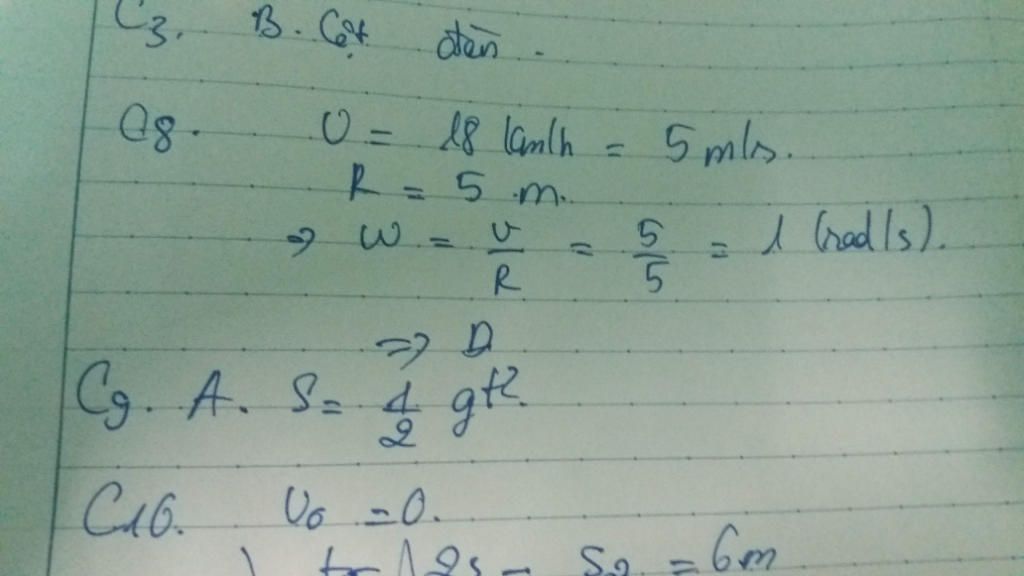 C3. B. Cột đèn.
C8. v = 18 km/h = 5 m/s.
R = 5 m.
=> ω = v/R = 5/5 = 1 (rad/s).
=> D
C9. A. S = 1/2 gt².
C16. v₀ = 0.
2s S₂ = 6m